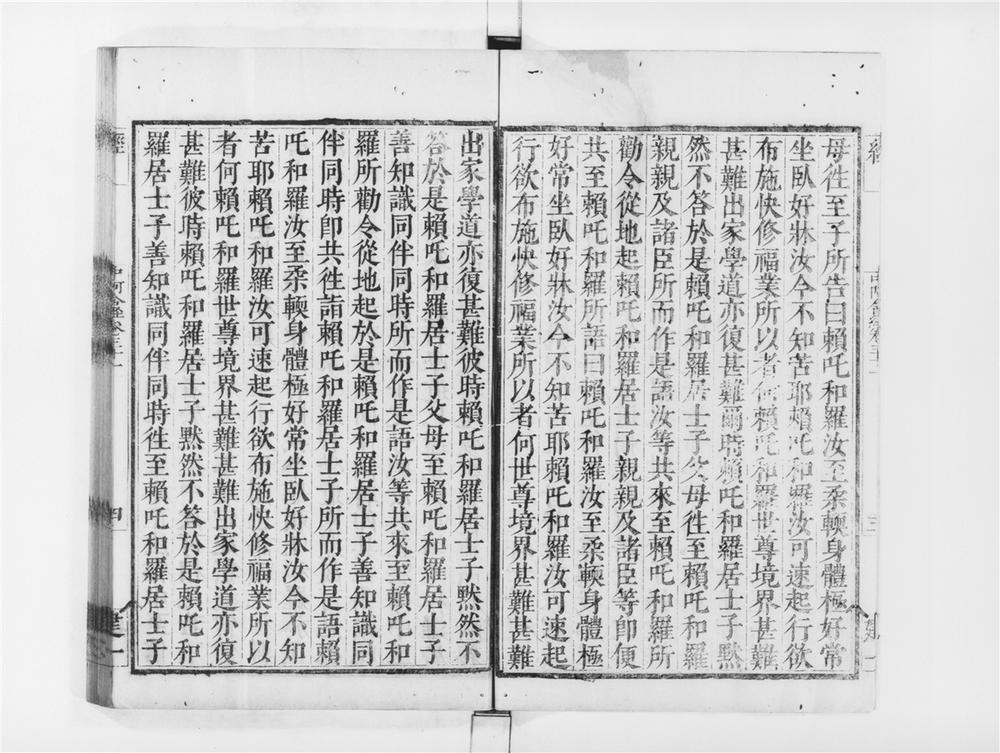 母徃至子所告曰賴吒和羅汝至柔輭身體極好常
坐臥好牀汝今不知苦耶賴吒和羅汝可速起行欲
布施快修福業所以者何賴吒和羅世尊境界甚難
甚難出家學道亦復甚難爾時賴吒和羅居士子默
然不答於是賴吒和羅居士子父母徃至賴吒和羅
親親及諸臣所而作是語汝等共來至賴吒和羅所
勸令從地起賴吒和羅居士子親親及諸臣等卽便
共至賴吒和羅所語曰賴吒和羅汝至柔輭身體極
好常坐臥好牀汝今不知苦耶賴吒和羅汝可速起
行欲布施快修福業所以者何世尊境界甚難甚難
出家學道亦復甚難彼時賴吒和羅居士子默然不
答於是賴吒和羅居士子父母至賴吒和羅居士子
善知識同伴同時所而作是語汝等共來至賴吒和
羅所勸令從地起於是賴吒和羅居士子善知識同
伴同時卽共徃詣賴吒和羅居士子所而作是語賴
吒和羅汝至柔輭身體極好常坐臥好牀汝今不知
苦耶賴吒和羅汝可速起行欲布施快修福業所以
者何賴吒和羅世尊境界甚難甚難出家學道亦復
甚難彼時賴吒和羅居士子默然不答於是賴吒和
羅居士子善知識同伴同時徃至賴吒和羅居士子